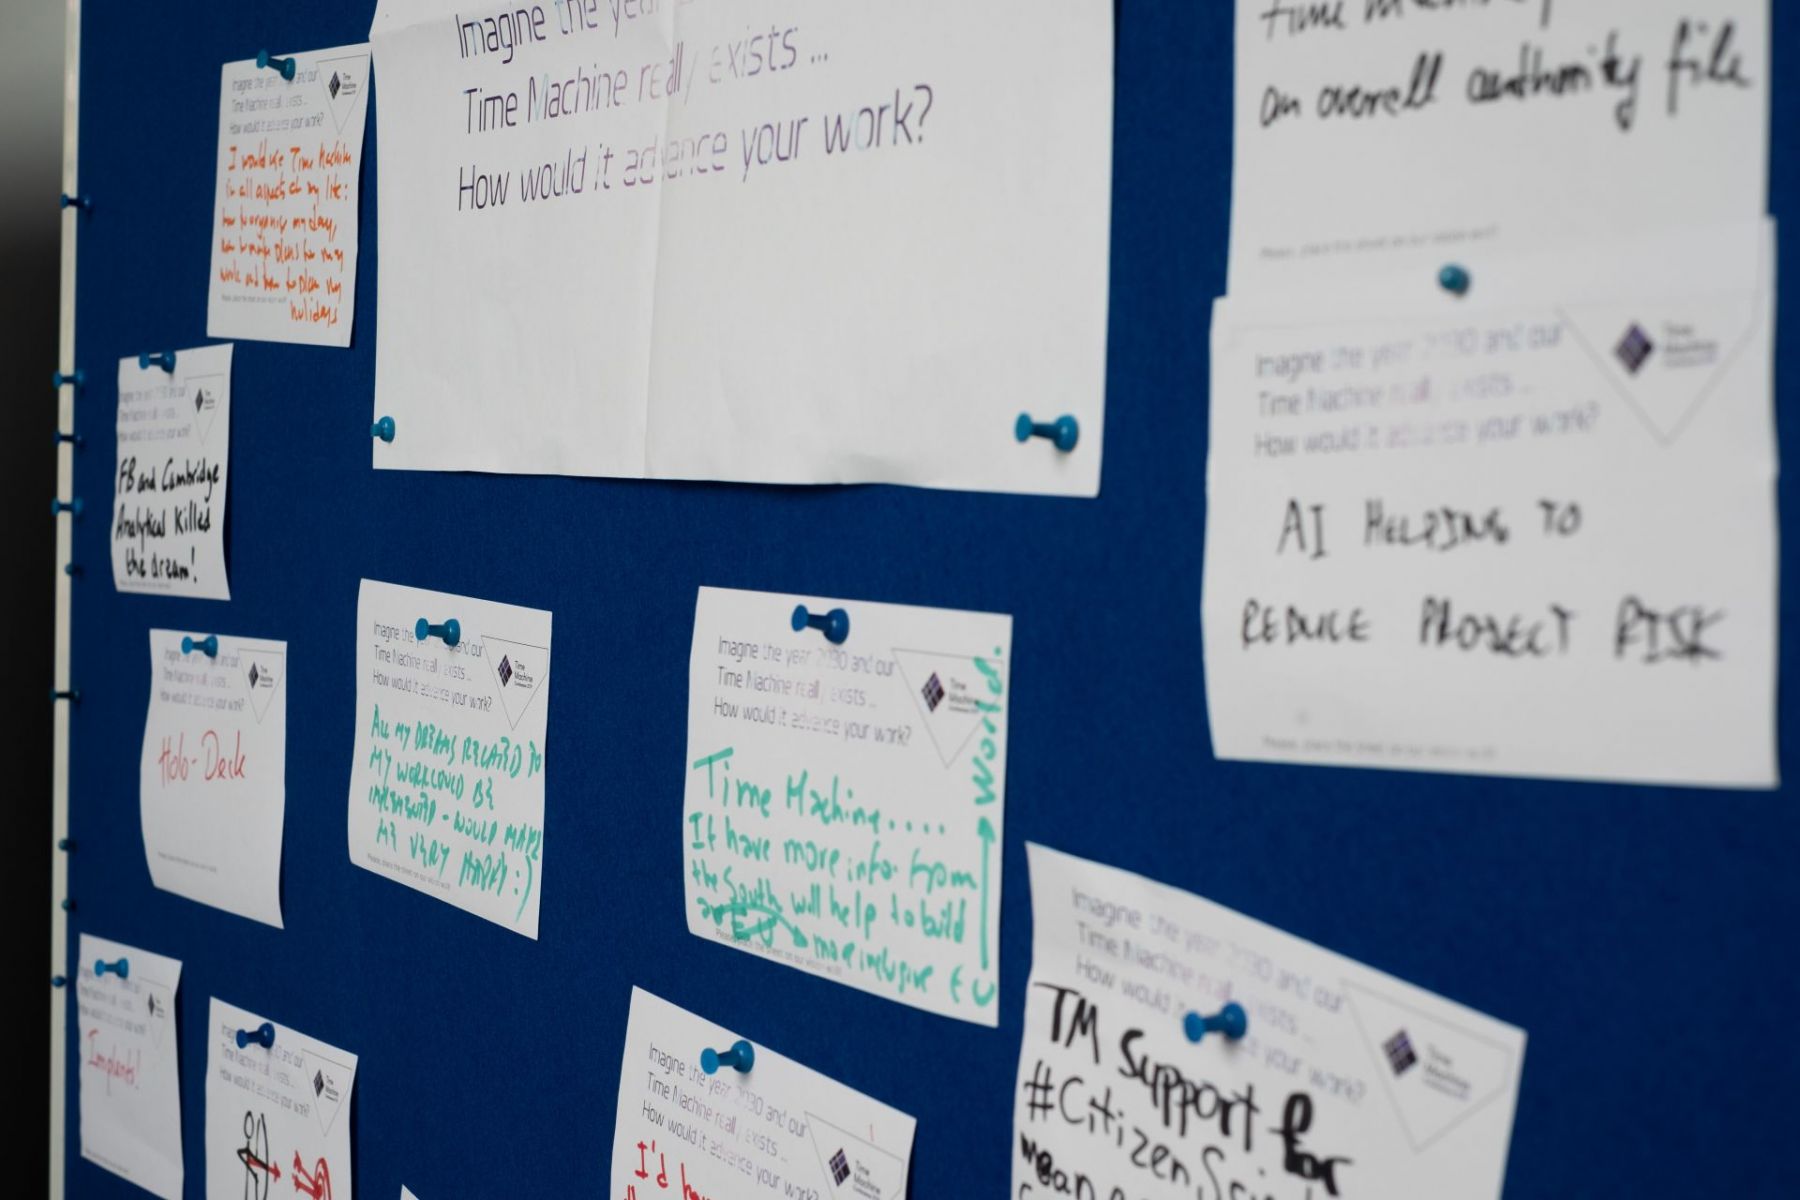 Imagine the year
Time Machine really exists ...
How would it advance your work?
Imagine the year and our
Time Machine really exists ...
How would it advance your work?
Time Machine
I would use Time Machine
in all aspects of my life:
how to organise my day,
how to make plans for my
work and how to plan my
holidays
an overall authority file
Please, place this sheet on our vision wall!
Imagine the year 2030 and our
Time Machine really exists ...
How would it advance your work?
Time
Machine
AI HELPING TO
REDUCE PROJECT RISK
Please, place this sheet on our vision wall!
Imagine the year 2030 and our
Time Machine really exists ...
How would it advance your work?
FB and Cambridge
Analytical killed
the dream!
Imagine the year and our
Time Machine really exists ...
How would it advance your work?
Time
Machine
Holo-Deck
Imagine the year and our
Time Machine really exists ...
How would it advance your work?
Time
Machine
ALL MY DREAMS RELATED TO
MY WORK COULD BE
IMPLEMENTED - WOULD MAKE
ME VERY HAPPY :)
Please, place this sheet on our vision wall!
Imagine the year 2030 and our
Time Machine really exists ...
How would it advance your work?
Time
Machine
Time Machine....
It have more info. from
the South will help to build
more inclusive EU
→ World.
Please, place this sheet on our vision wall!
Imagine the year 2030 and our
Time Machine really exists ...
How would it your work?
Time
Machine
TM Support for
#CitizenScie
Implants!
Imagine the year and our
Time Machine really exists ...
How would it advance your work?
Time
Machine
Imagine the year 2030 and our
Time Machine really exists ...
How would it advance your work?
Time
Machine
I'd